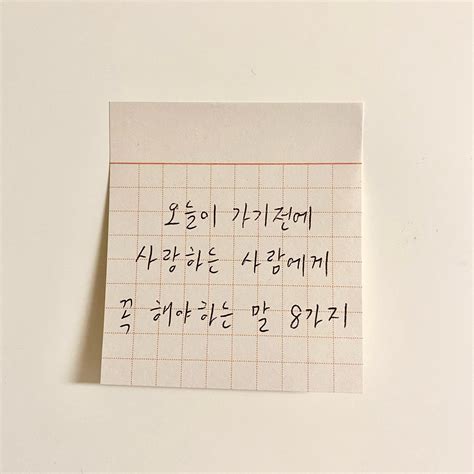 오늘이 가기전에
사랑하는 사람에게
꼭 해야하는 말 8가지